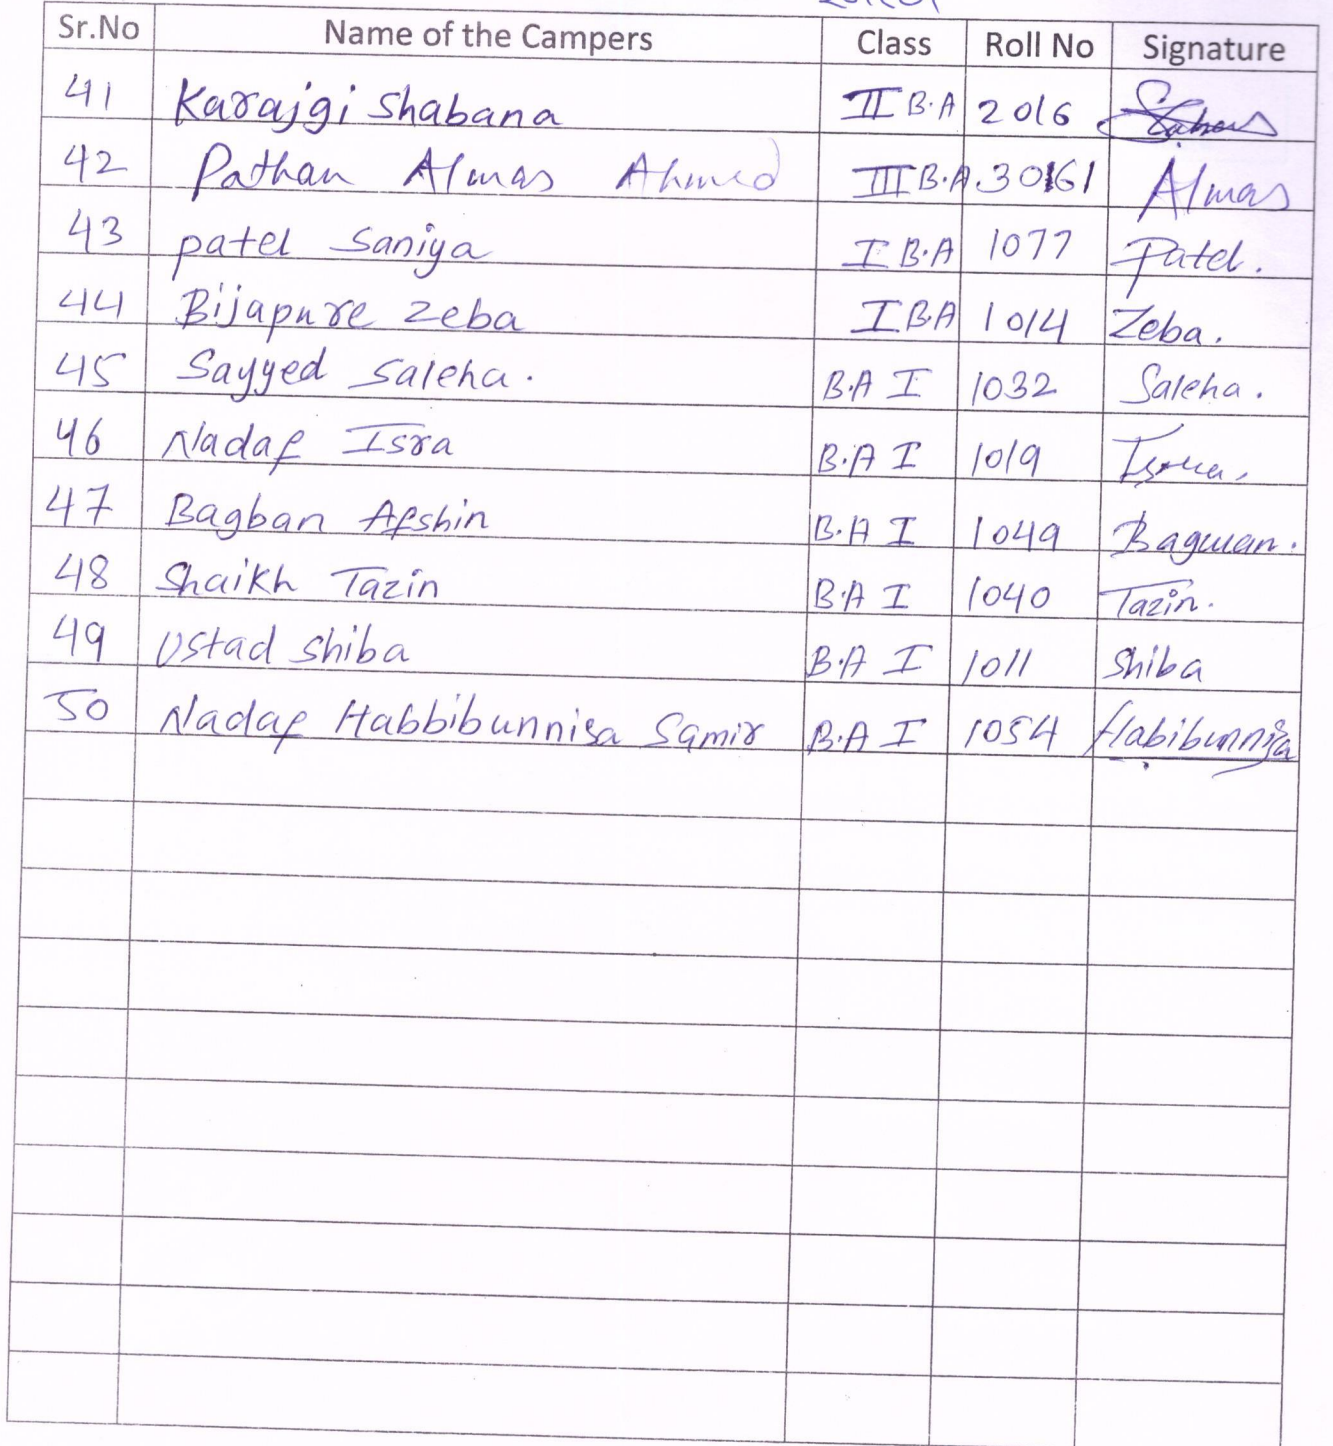 Sr.No Name of the Campers Class Roll No Signature
41 Karajgi Shabana II B.A 2016
42 Pathan Almas Ahmed III B.A. 30161 Almas
43 patel Saniya I B.A 1077 Patel.
44 Bijapure Zeba I B.A 1014 Zeba.
45 Sayyed Saleha. B.A I 1032 Saleha.
46 Nadaf Isra B.A I 1019 Isra.
47 Bagban Afshin B.A I 1049 Bagwan.
48 Shaikh Tazin B.A I 1040 Tazin.
49 Ustad Shiba B.A I 1011 Shiba
50 Nadaf Habbibunnisa Samir B.A I 1054 Habibunnisa